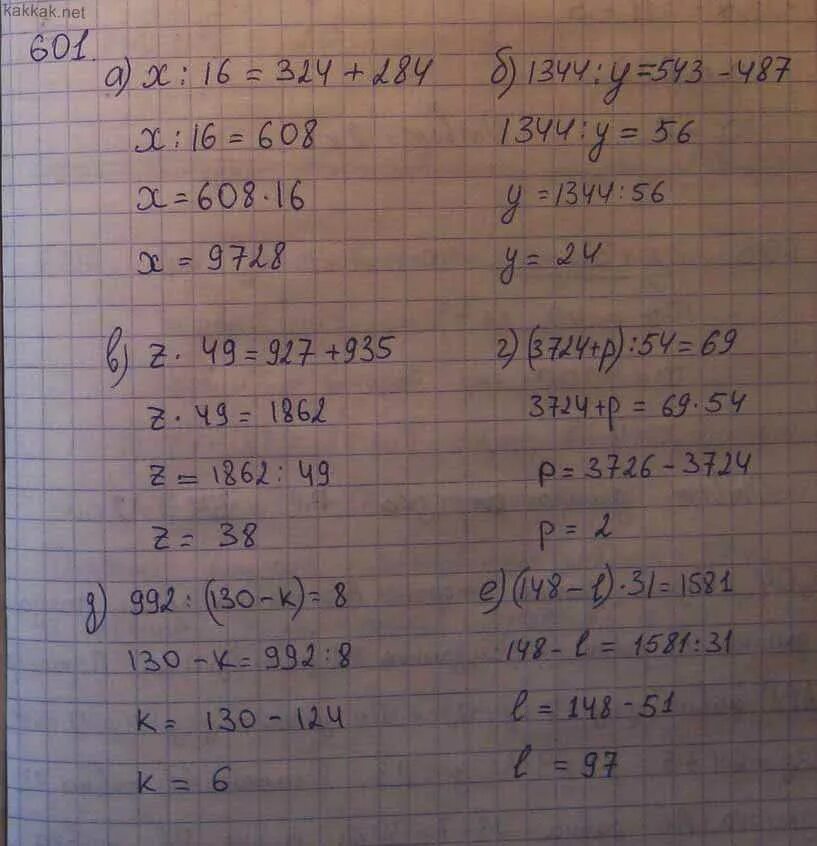 kakkak.net
601.
а) x : 16 = 324 + 284
x : 16 = 608
x = 608 · 16
x = 9728
б) 1344 : y = 543 - 487
1344 : y = 56
y = 1344 : 56
y = 24
в) z · 49 = 927 + 935
z · 49 = 1862
z = 1862 : 49
z = 38
г) (3724 + p) : 54 = 69
3724 + p = 69 · 54
p = 3726 - 3724
p = 2
д) 992 : (130 - k) = 8
130 - k = 992 : 8
k = 130 - 124
k = 6
е) (148 - l) · 31 = 1581
148 - l = 1581 : 31
l = 148 - 51
l = 97